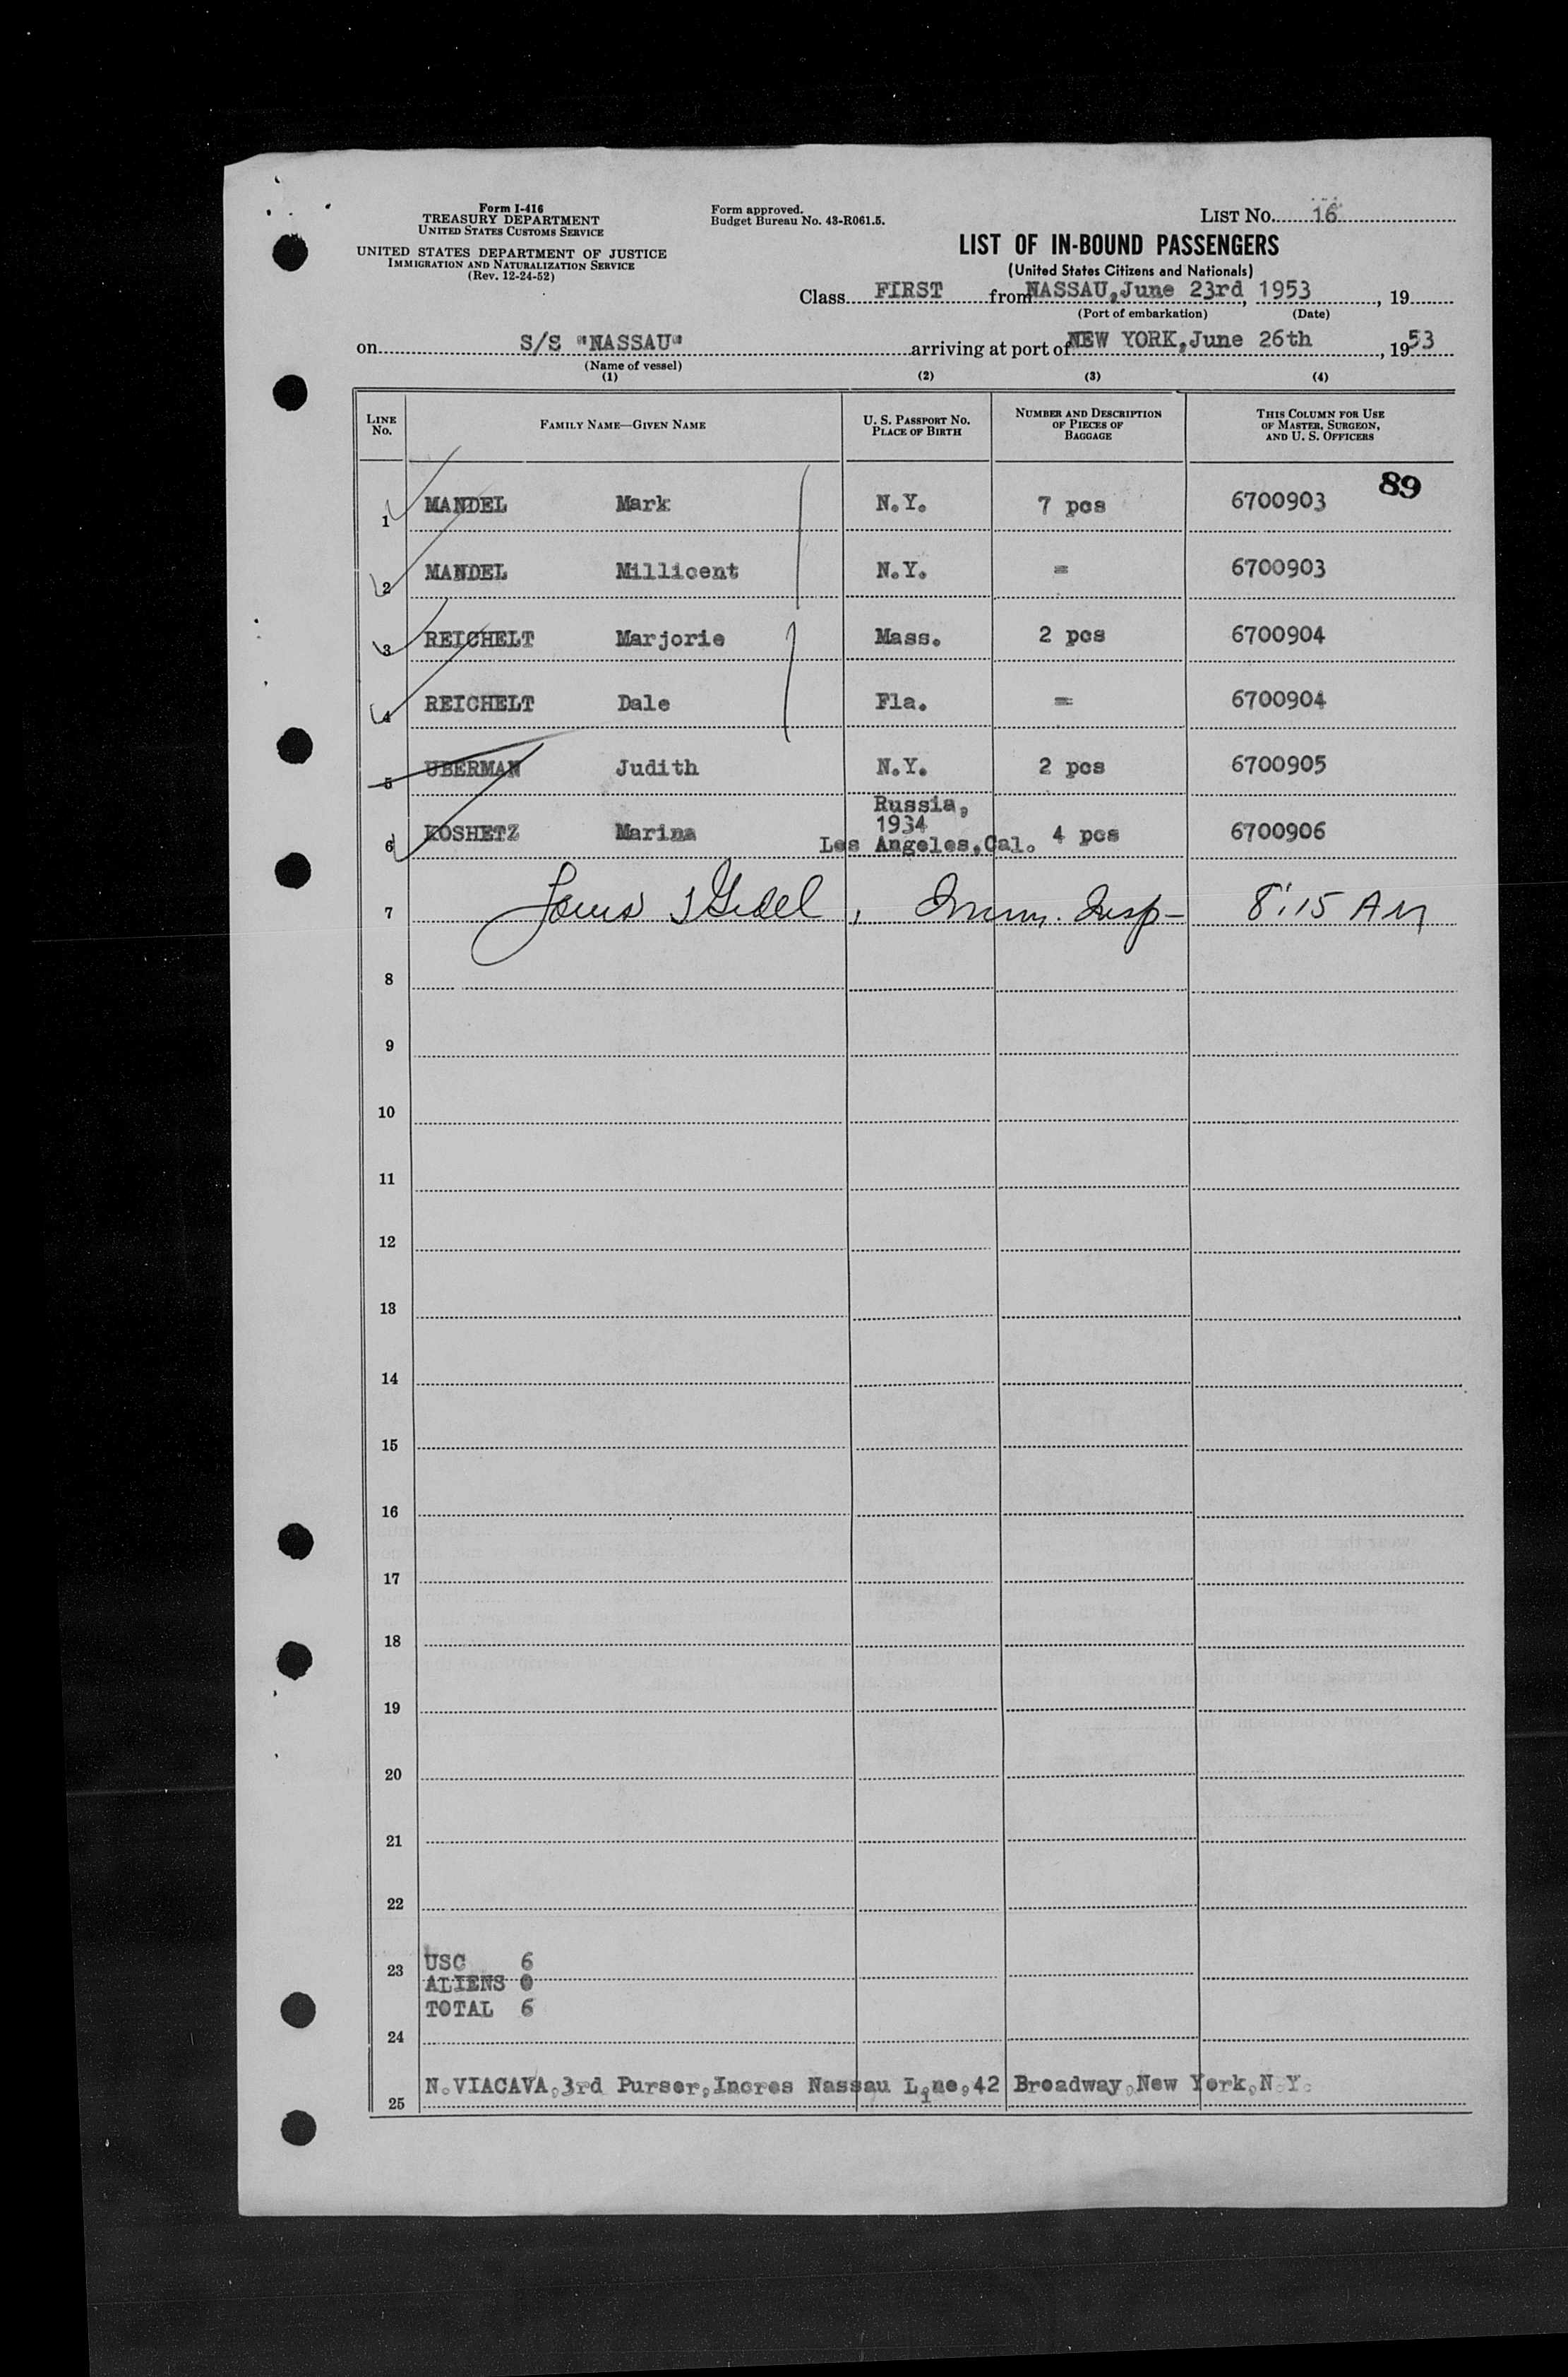 Form I-416
TREASURY DEPARTMENT
UNITED STATES CUSTOMS SERVICE
UNITED STATES DEPARTMENT OF JUSTICE
IMMIGRATION AND NATURALIZATION SERVICE
(Rev. 12-24-52)
Form approved.
Budget Bureau No. 43-R061.5.
LIST NO. 16
LIST OF IN-BOUND PASSENGERS
(United States Citizens and Nationals)
Class FIRST from NASSAU, June 23rd, 1953, 19
(Port of embarkation) (Date)
on S/S "NASSAU" arriving at port of NEW YORK, June 26th, 1953
(Name of vessel)
(1) (2) (3) (4)
LINE No. FAMILY NAME—GIVEN NAME U. S. PASSPORT NO. PLACE OF BIRTH NUMBER AND DESCRIPTION OF PIECES OF BAGGAGE THIS COLUMN FOR USE OF MASTER, SURGEON, AND U. S. OFFICERS
89
1 MANDEL Mark N.Y. 7 pcs 6700903
2 MANDEL Millicent N.Y. = 6700903
3 REICHELT Marjorie Mass. 2 pcs 6700904
4 REICHELT Dale Fla. = 6700904
5 UBERMAN Judith N.Y. 2 pcs 6700905
Russia,
1934
6 KOSHETZ Marina Los Angeles,Cal. 4 pcs 6700906
7 Immn. Insp- 8:15 AM
8
9
10
11
12
13
14
15
16
17
18
19
20
21
22
USC 6
23
ALIENS 0
TOTAL 6
24
N.VIACAVA,3rd Purser,Incres Nassau Line,42 Broadway,New York,N.Y.
25